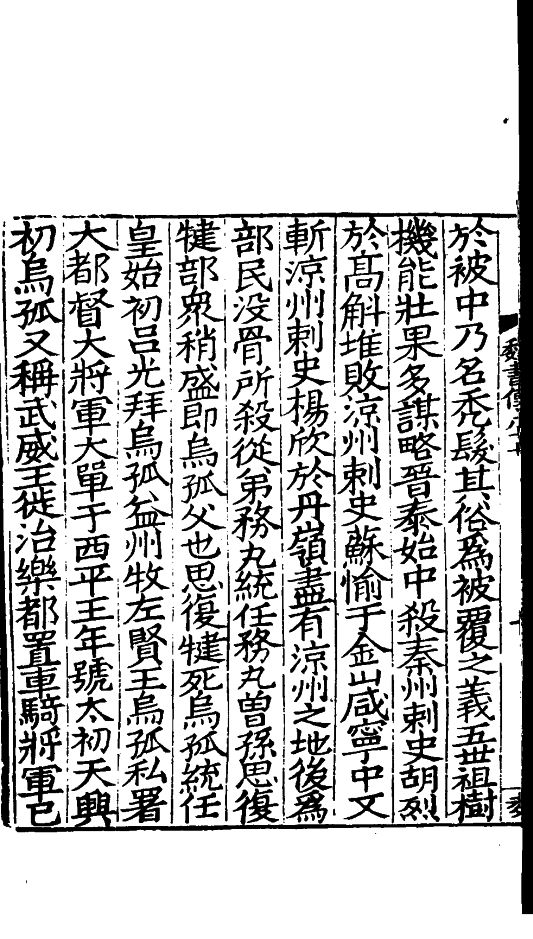 於被中乃名禿髮其俗爲被覆之義五世祖樹
機能壯果多謀略晉泰始中殺秦州刺史胡烈
於髙斛堆敗涼州刺史蘇愉于金山咸寧中又
斬涼州刺史楊欣於丹嶺盡有涼州之地後爲
部民没骨所殺從弟務丸統任務丸曽孫思復
犍部衆稍盛即烏孤父也思復犍死烏孤統任
皇始初吕光拜烏孤益州牧左賢王烏孤私署
大都督大將軍大單于西平王年號太初天興
初烏孤又稱武威王徙治樂都置車騎將軍已